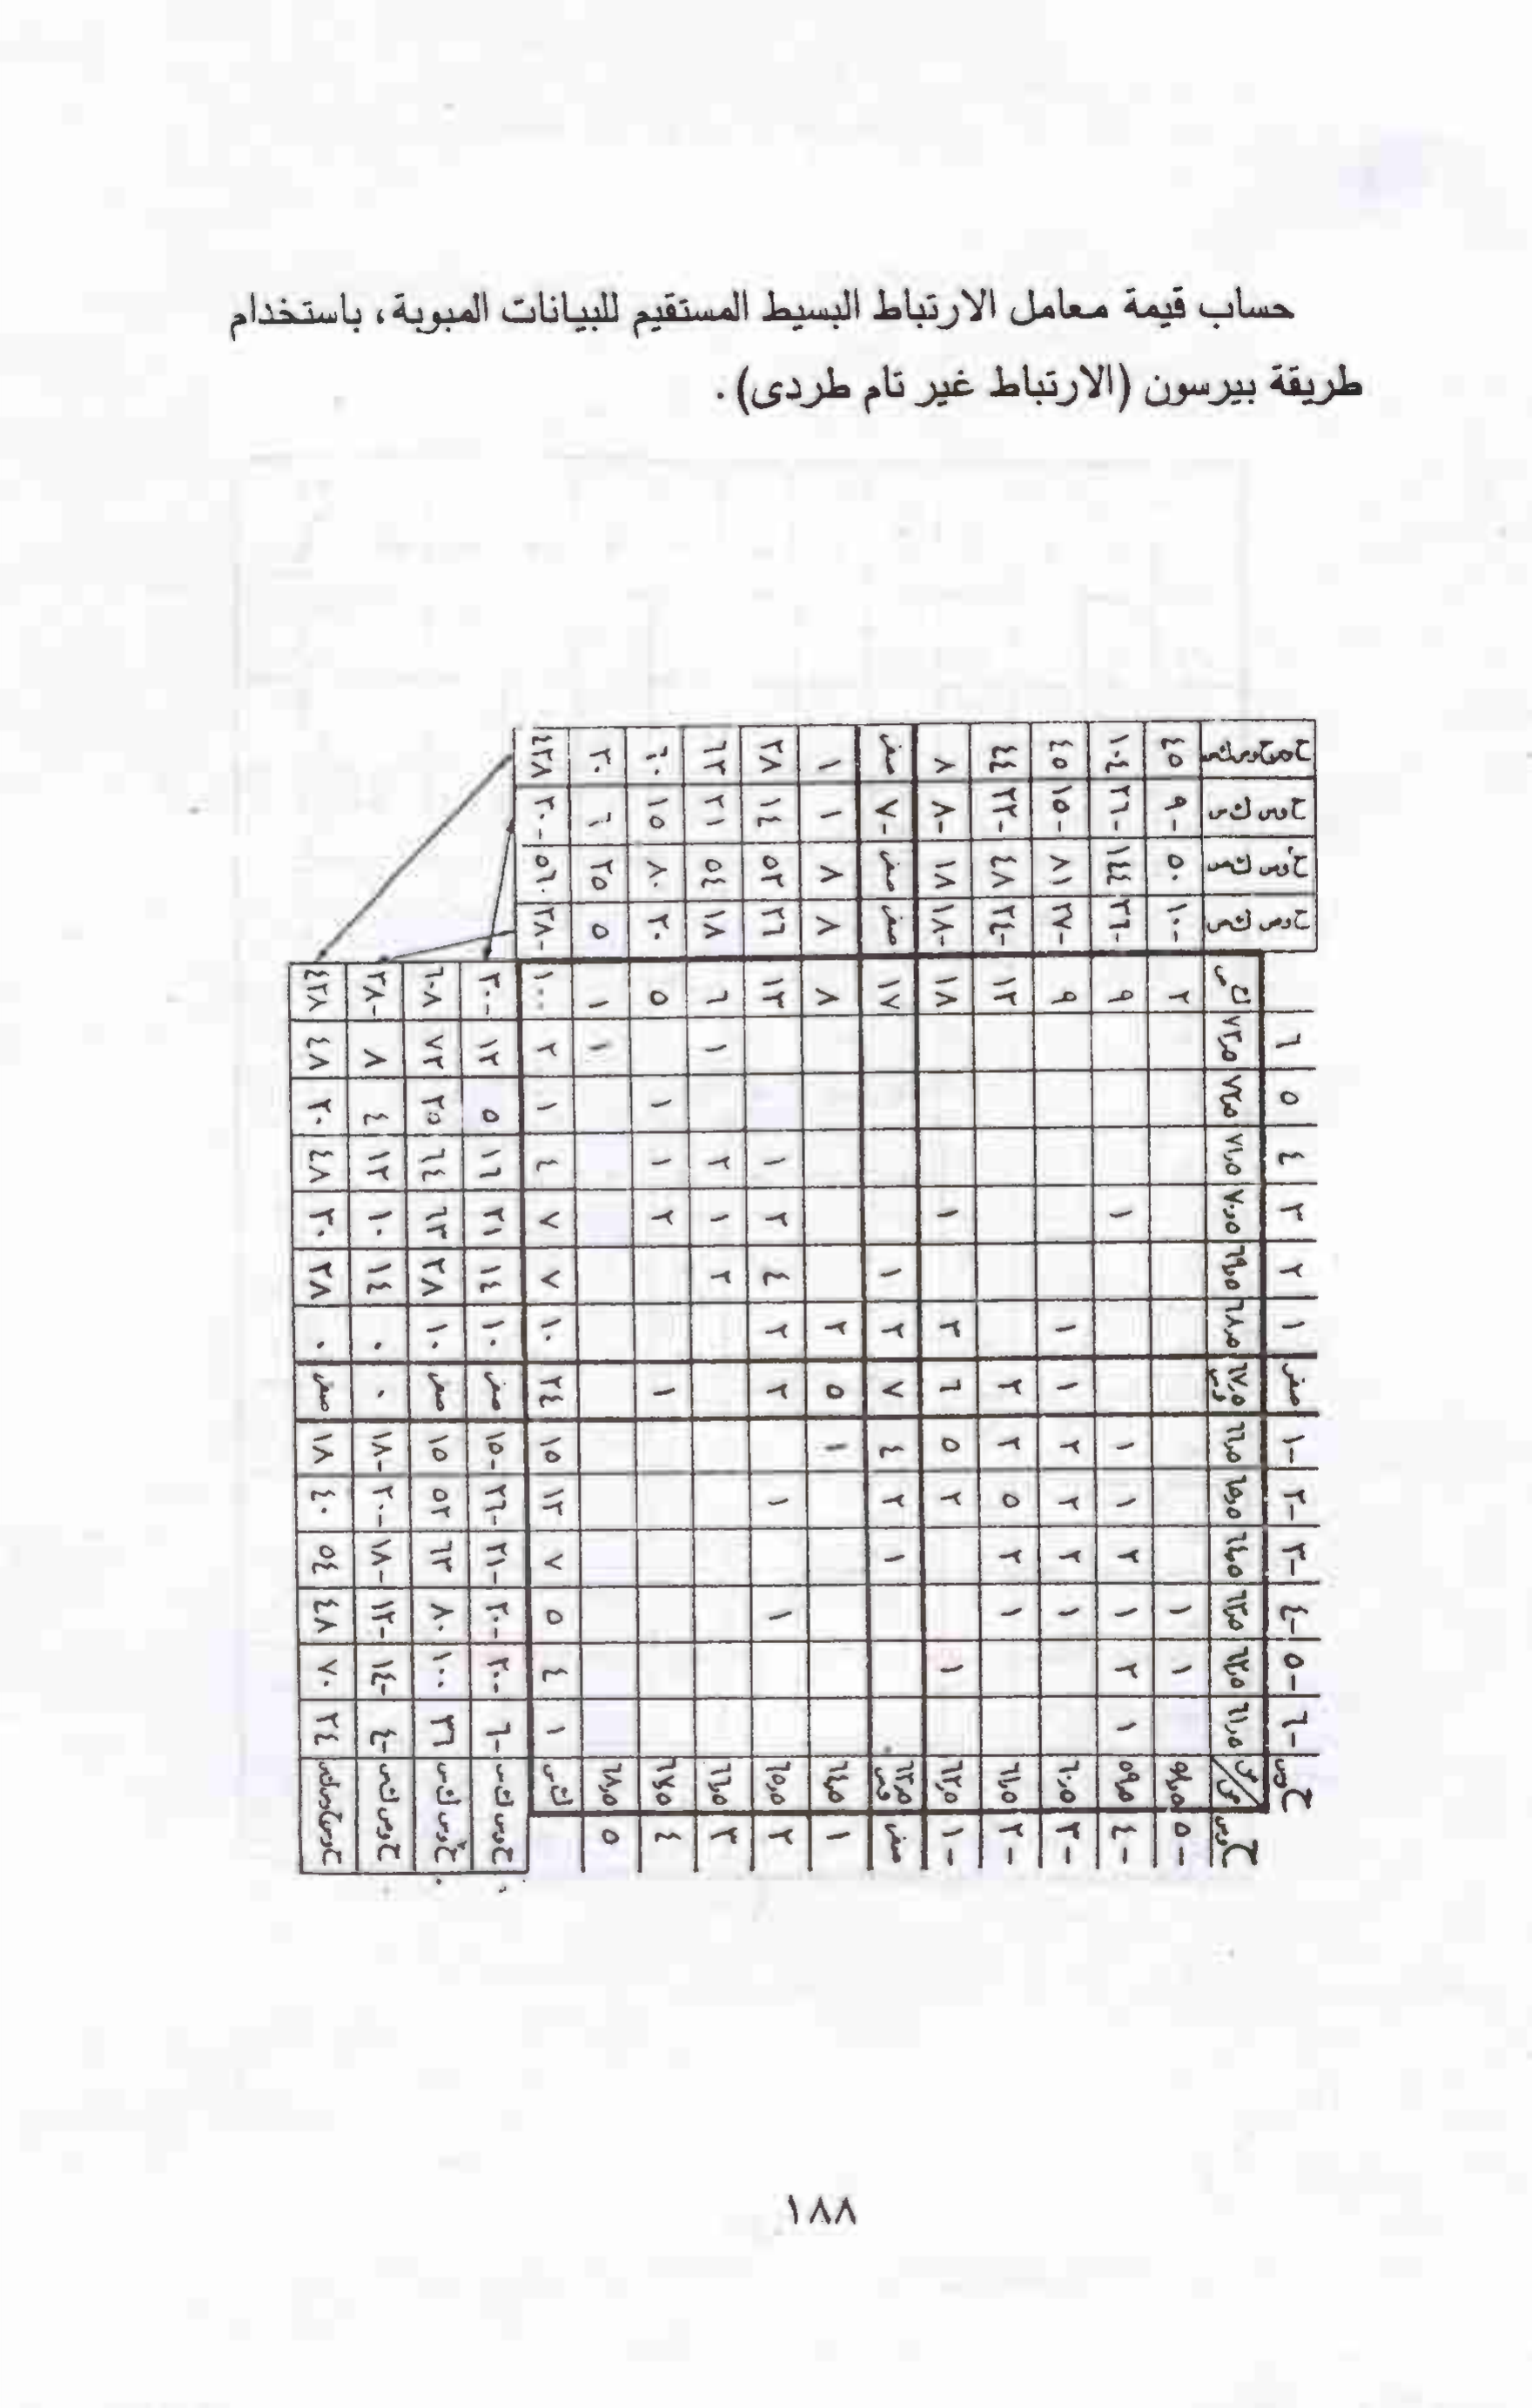 حساب قيمة معامل الارتباط البسيط المستقيم للبيانات المبوبة، باستخدام
طريقة بيرسون (الارتباط غير تام طردى).
ح وس -٦ -٥ -٤ -٣ -٢ -١ صفر ١ ٢ ٣ ٤ ٥ ٦
ح وص س ص ٦١٫٥ ٦٢٫٥ ٦٣٫٥ ٦٤٫٥ ٦٥٫٥ ٦٦٫٥ ٦٧٫٥ وس ٦٨٫٥ ٦٩٫٥ ٧٠٫٥ ٧١٫٥ ٧٢٫٥ ٧٣٫٥ ك ص ح وص ك ص ح٢ وص ك ص ح وس ك س
-٥ ٥٨٫٥ ١ ١ ٢ -١٠ ٥٠ -٩ ٤٥
-٤ ٥٩٫٥ ١ ٢ ١ ٢ ١ ١ ١ ٩ -٣٦ ١٤٤ -٢٦ ١٠٤
-٣ ٦٠٫٥ ١ ٢ ٢ ٢ ١ ١ ٩ -٢٧ ٨١ -١٥ ٤٥
-٢ ٦١٫٥ ١ ٢ ٥ ٢ ٢ ١٢ -٢٤ ٤٨ -٢٢ ٤٤
-١ ٦٢٫٥ ١ ٢ ٥ ٦ ٣ ١ ١٨ -١٨ ١٨ -٨ ٨
صفر ٦٣٫٥ وص ١ ٢ ٤ ٧ ٢ ١ ١٧ صفر صفر -٧ صفر
١ ٦٤٫٥ ١ ٥ ٢ ٨ ٨ ٨ ١ ١
٢ ٦٥٫٥ ١ ١ ٢ ٢ ٤ ٢ ١ ١٣ ٢٦ ٥٢ ١٤ ٢٨
٣ ٦٦٫٥ ٢ ١ ٢ ١ ٦ ١٨ ٥٤ ٢١ ٦٣
٤ ٦٧٫٥ ١ ٢ ١ ١ ٥ ٢٠ ٨٠ ١٥ ٦٠
٥ ٦٨٫٥ ١ ١ ٥ ٢٥ ٦ ٣٠
ك س ١ ٤ ٥ ٧ ١٣ ١٥ ٢٤ ١٠ ٧ ٧ ٤ ١ ٢ ١٠٠ -٣٨ ٥٦٠ -٣٠ ٤٣٨
ح وس ك س -٦ -٢٠ -٢٠ -٢١ -٢٦ -١٥ صفر ١٠ ١٤ ٢١ ١٦ ٥ ١٢ -٣٠
ح٢ وس ك س ٣٦ ١٠٠ ٨٠ ٦٣ ٥٢ ١٥ صفر ١٠ ٢٨ ٦٣ ٦٤ ٢٥ ٧٢ ٦٠٨
ح وص ك ص -٤ -١٤ -١٢ -١٨ -٢٠ -١٨ ٠ ٠ ١٤ ١٠ ١٢ ٤ ٨ -٣٨
ح وس ح وص ك س ٢٤ ٧٠ ٤٨ ٥٤ ٤٠ ١٨ صفر ٠ ٢٨ ٣٠ ٤٨ ٢٠ ٤٨ ٤٣٨
١٨٨